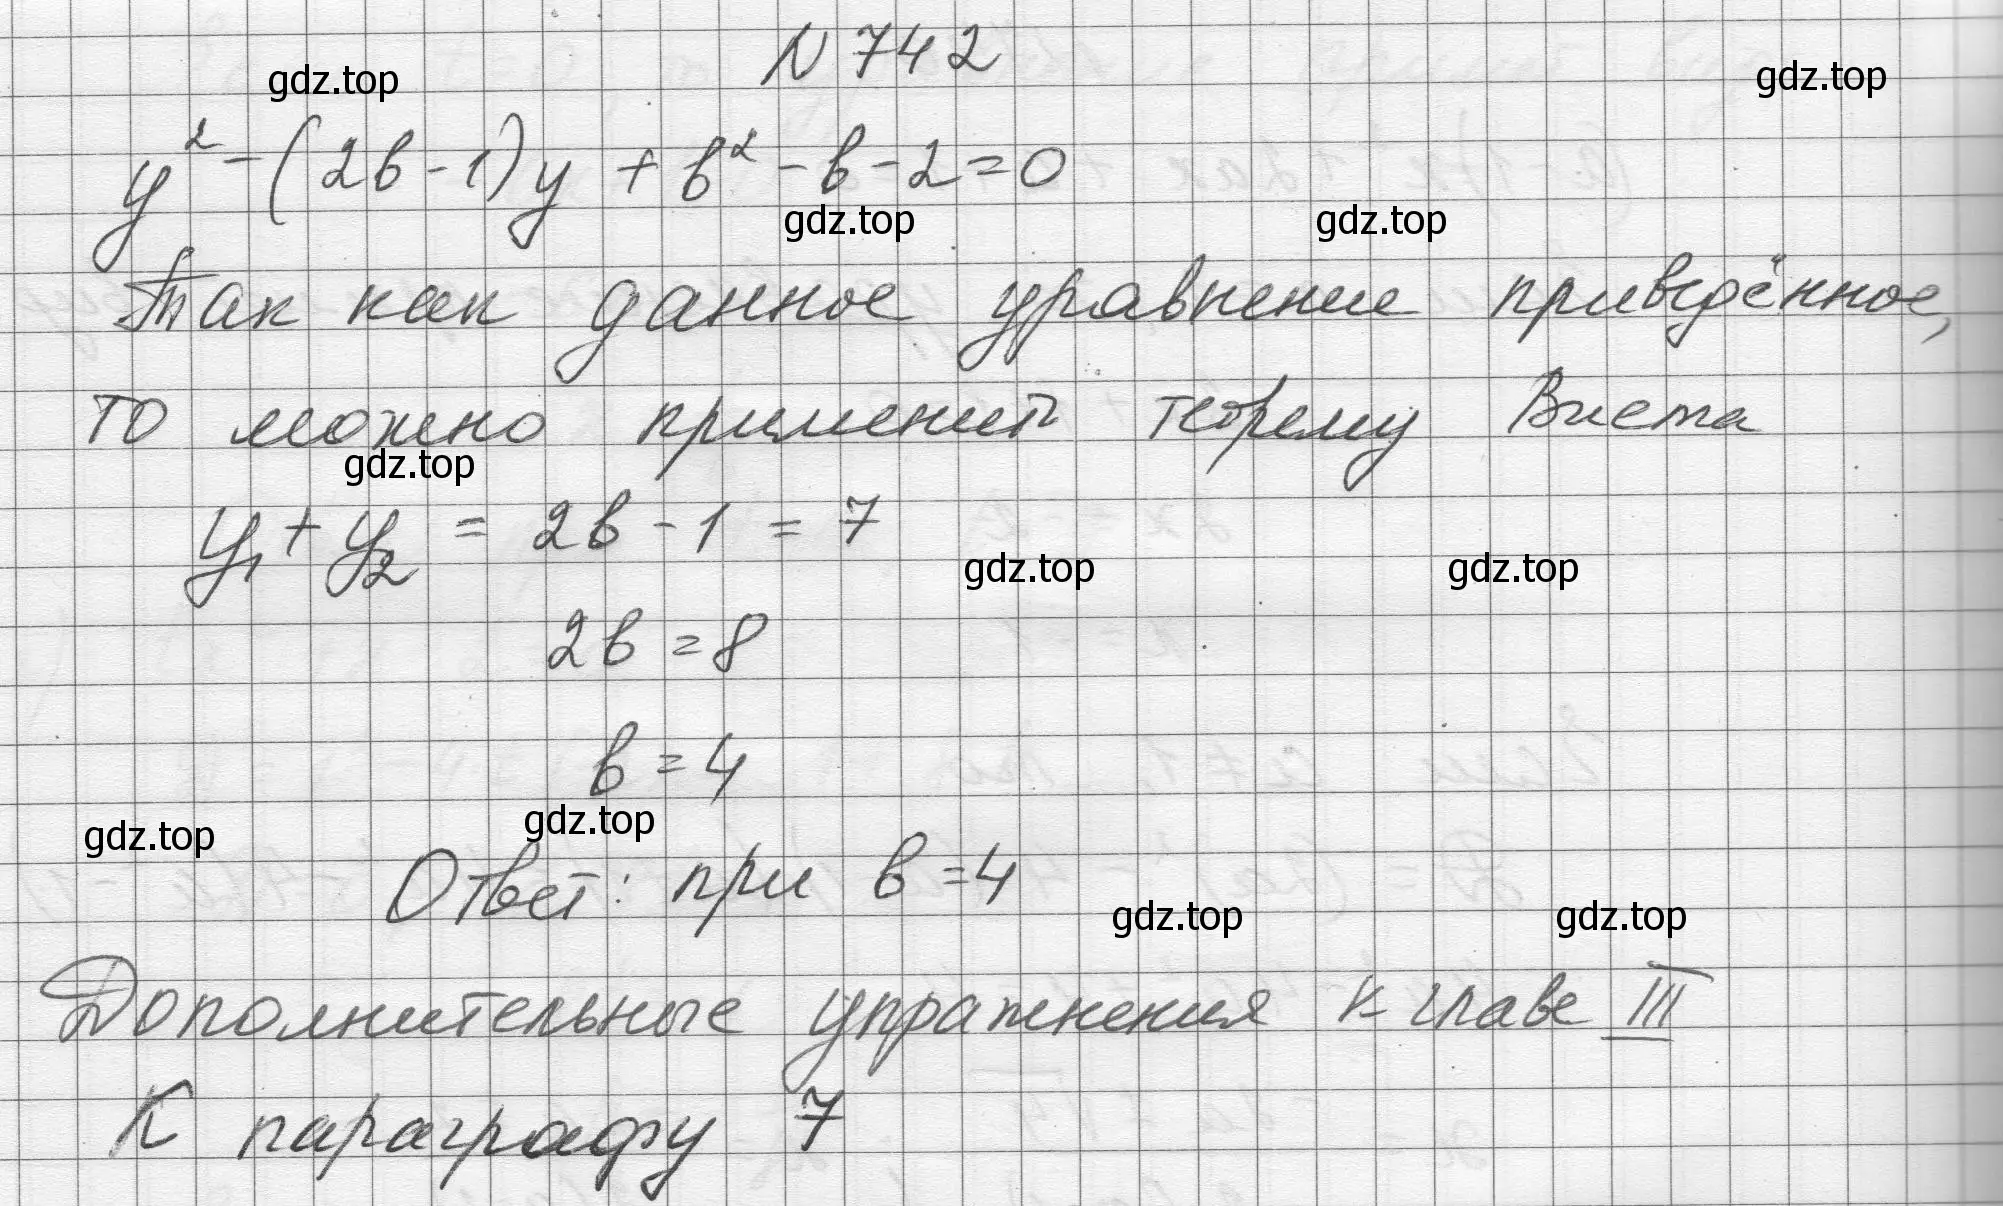 N 742
gdz.top
gdz.top
y² - (2b - 1)y + b² - b - 2 = 0
gdz.top
gdz.top
Так как данное уравнение приведённое,
то можно применить теорему Виета
gdz.top
y₁ + y₂ = 2b - 1 = 7
gdz.top
gdz.top
2b = 8
b = 4
gdz.top
gdz.top
Ответ: при b = 4
gdz.top
gdz.top
Дополнительные упражнения к главе III
К параграфу 7